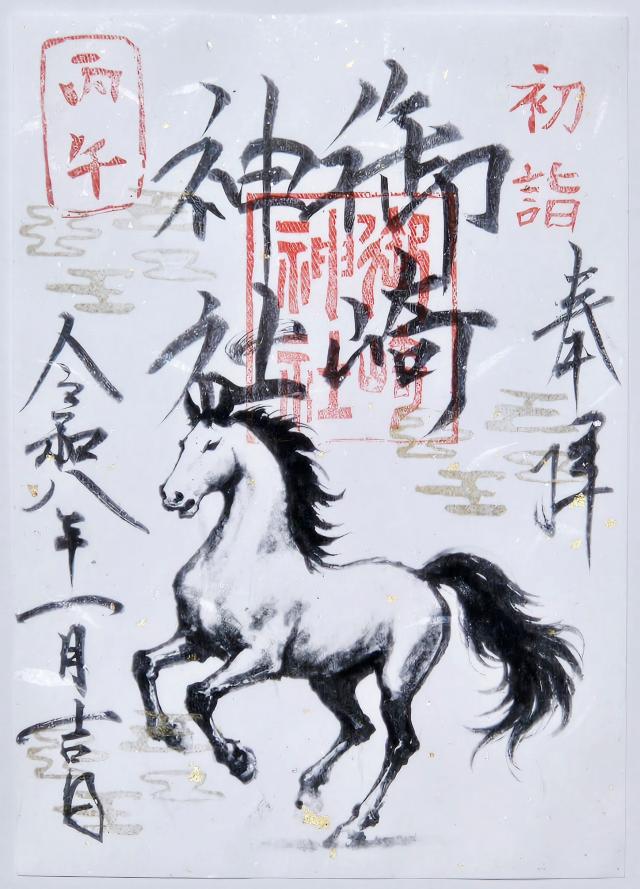 初詣
奉拝
御崎
神社
御崎
神社
丙午
令和八年一月吉日